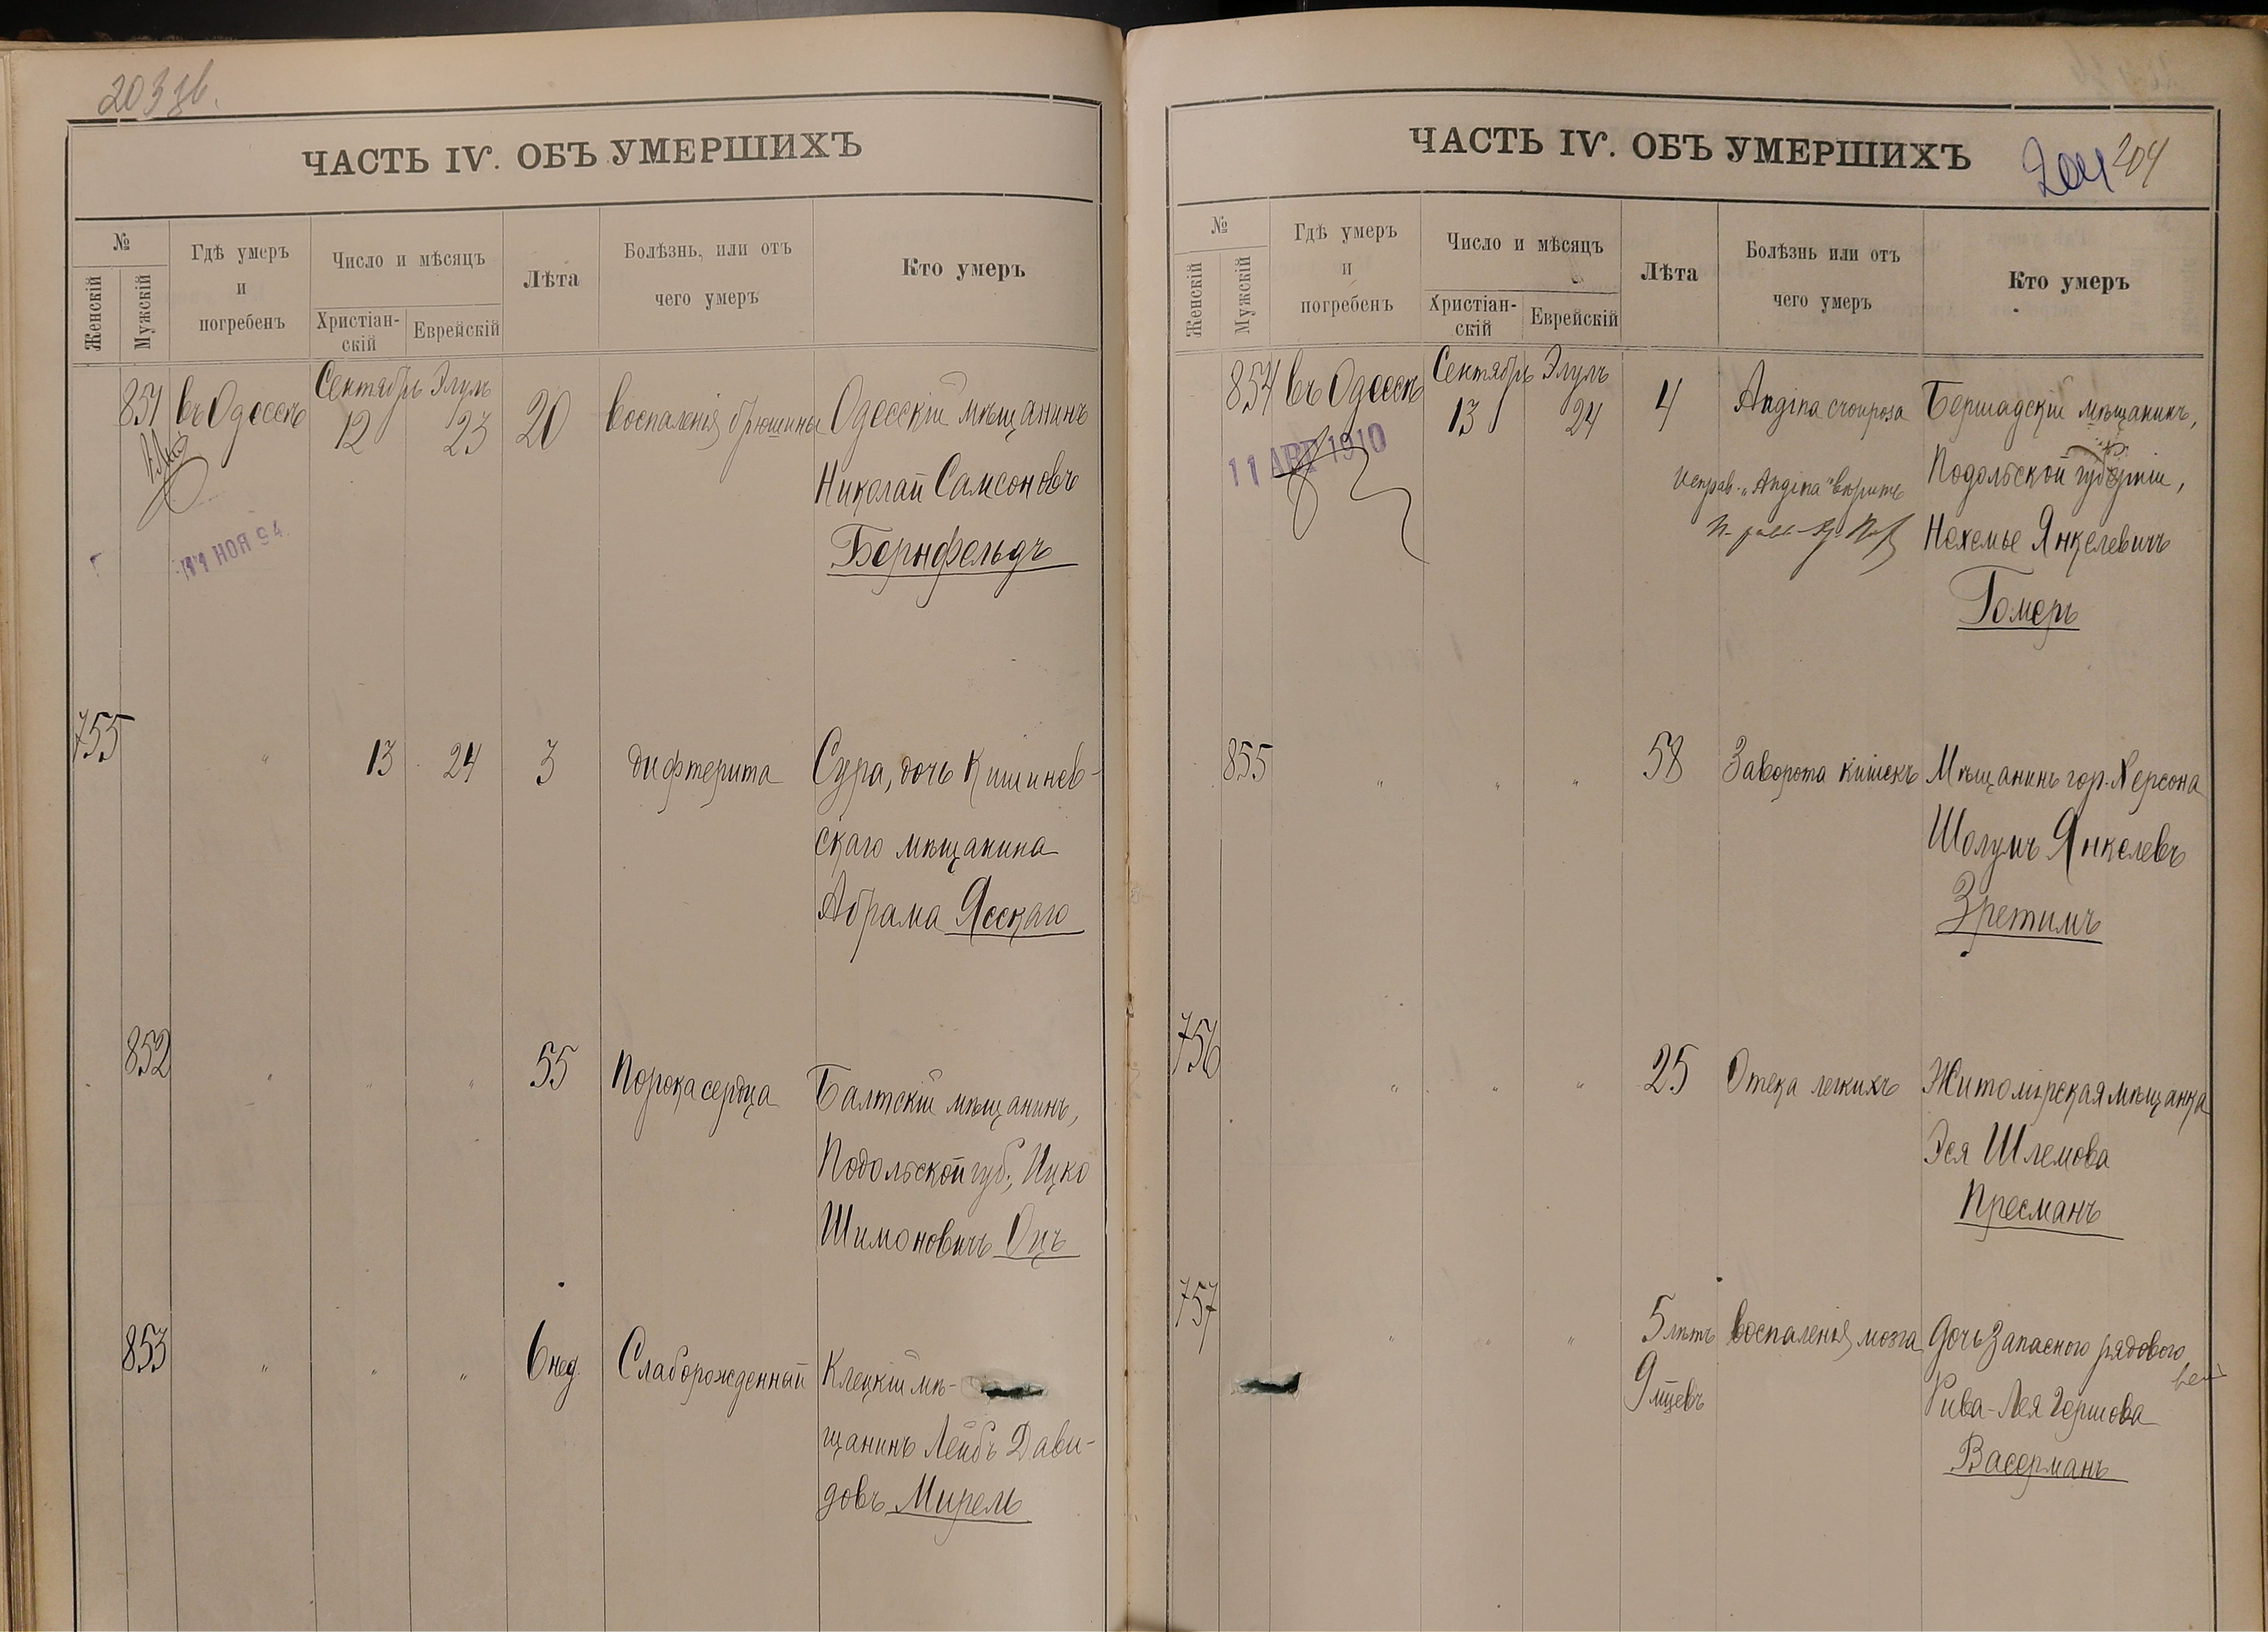 203 об.
ЧАСТЬ IV. ОБЪ УМЕРШИХЪ
№
Женскій
Мужскій
Гдѣ умеръ
и
погребенъ
Число и мѣсяцъ
Христіан-
скій
Еврейскій
Лѣта
Болѣзнь, или отъ
чего умеръ
Кто умеръ
851 въ Одессѣ Сентябрь 12 Элулъ 23 20 воспаленія брюшины Одесскій мѣщанинъ
Николай Самсоновъ
Бернфельдъ
НОЯ 94.
755 " 13 24 3 дифтерита Сура, дочь Кишинев-
скаго мѣщанина
Абрама Ясскаго
852 " " " 55 Порока сердца Балтскій мѣщанинъ,
Подольской губ., Ицко
Шимоновичъ Оцъ
853 " " " 6 нед. Слаборожденный Клецкій мѣ-
щанинъ Лейбъ Дави-
довъ Мирель
ЧАСТЬ IV. ОБЪ УМЕРШИХЪ
204 204
№
Женскій
Мужскій
Гдѣ умеръ
и
погребенъ
Число и мѣсяцъ
Христіан-
скій
Еврейскій
Лѣта
Болѣзнь или отъ
чего умеръ
Кто умеръ
854 въ Одессѣ Сентябрь 13 Элулъ 24 4 Angina crouposa Бершадскій мѣщанинъ,
11 АВГ 1910
Исправ. „Angina" вѣрить
Подольской губерніи,
Нехемье Янкелевичъ
Гомеръ
855 " " " 58 Заворота кишекъ Мѣщанинъ гор. Херсона
Шолумъ Янкелевъ
Зретимъ
756 " " " 25 Отека легкихъ Житомірская мѣщанка
Эся Шлемова
Пресманъ
757 " " " 5 лѣтъ воспаленія мозга дочь запасного рядового
9 мцевъ
Рива-Лея Гершова
Васерманъ